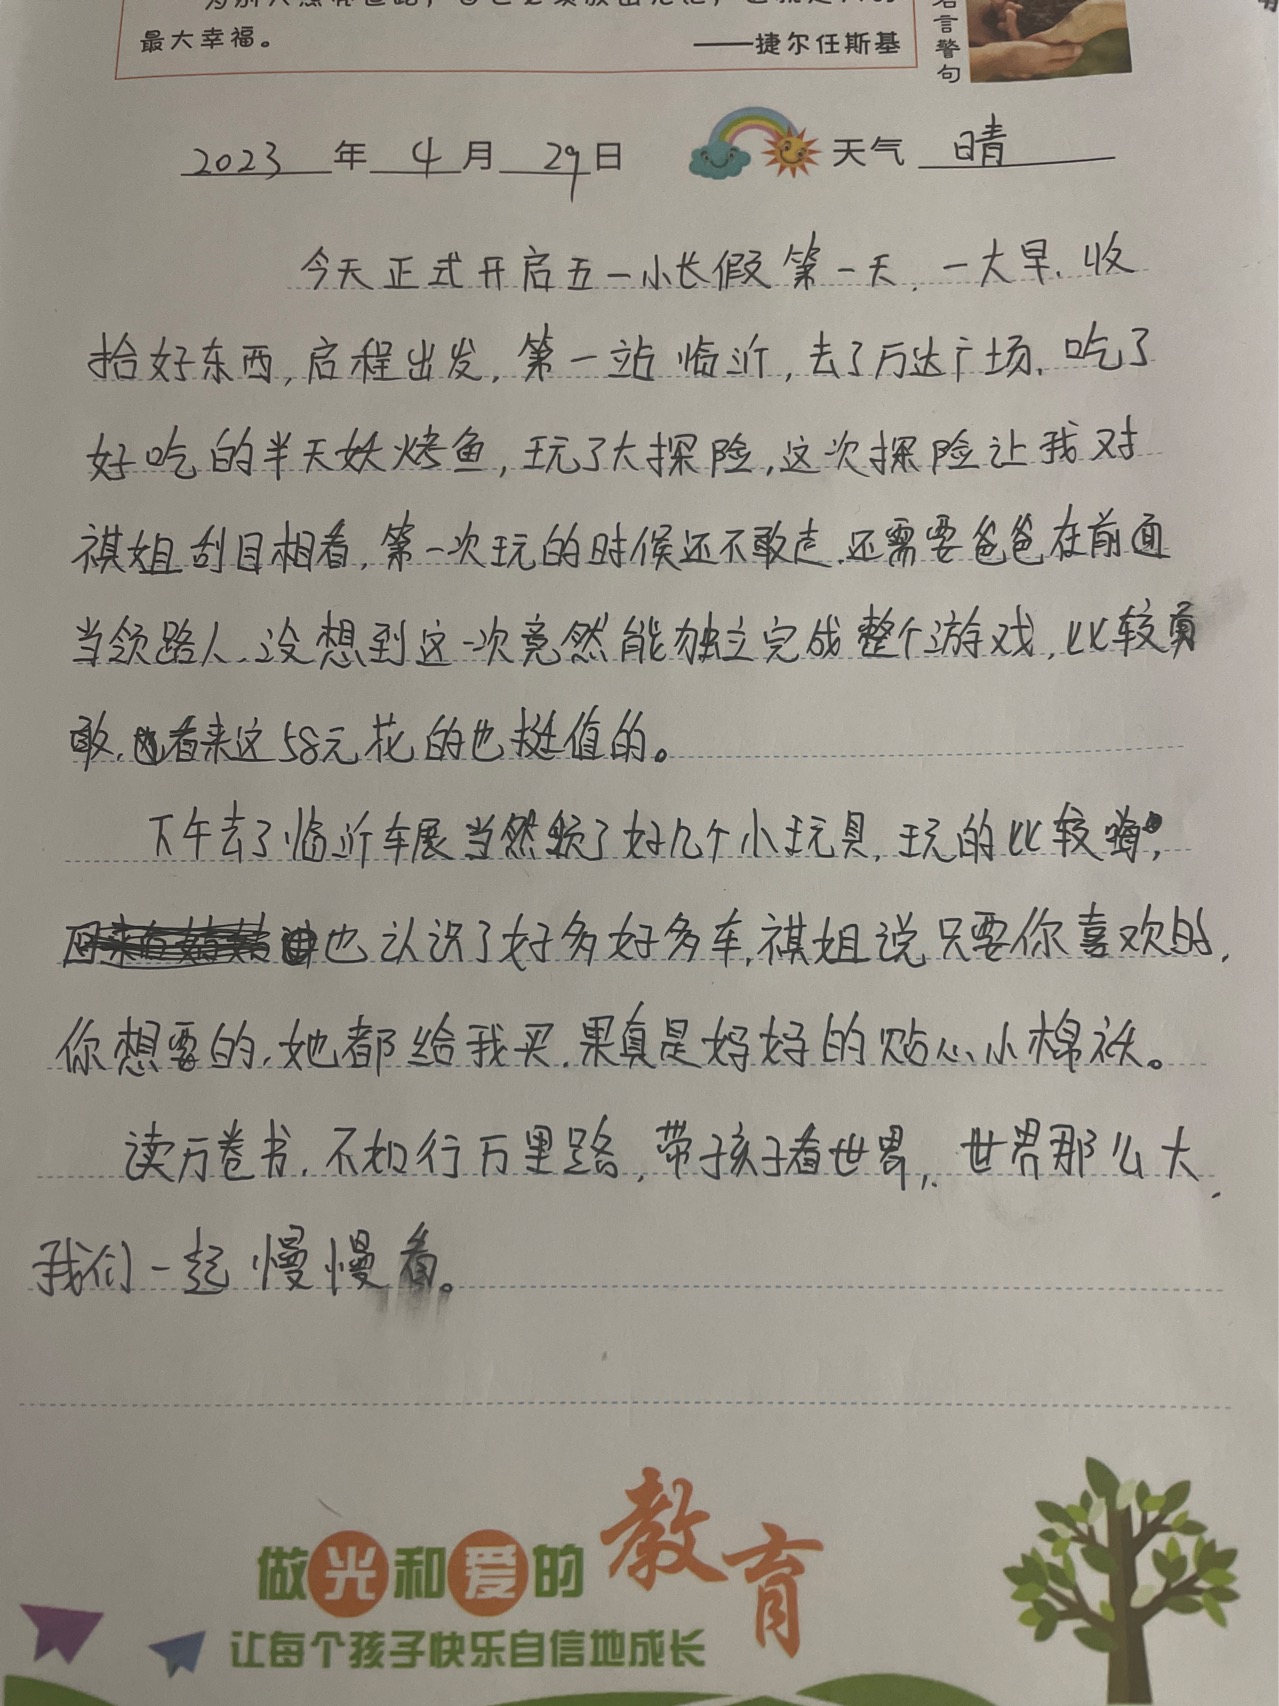 最大幸福。 ——捷尔任斯基
言警句
2023年4月29日 天气 晴
今天正式开启五一小长假第一天，一大早、收
拾好东西，启程出发，第一站临沂，去了万达广场，吃了
好吃的半天妖烤鱼，玩了大探险，这次探险让我对
祺姐刮目相看，第一次玩的时候还不敢走，还需要爸爸在前面
当领路人、没想到这一次竟然能独立完成整个游戏，比较勇
敢，看来这58元花的也挺值的。
下午去了临沂车展当然玩了好几个小玩具，玩的比较嗨，
也认识了好多好多车，祺姐说只要你喜欢的，
你想要的，她都给我买，果真是妈妈的贴心小棉袄。
读万卷书，不如行万里路，带孩子看世界，世界那么大，
我们一起慢慢看。
做光和爱的教育
让每个孩子快乐自信地成长